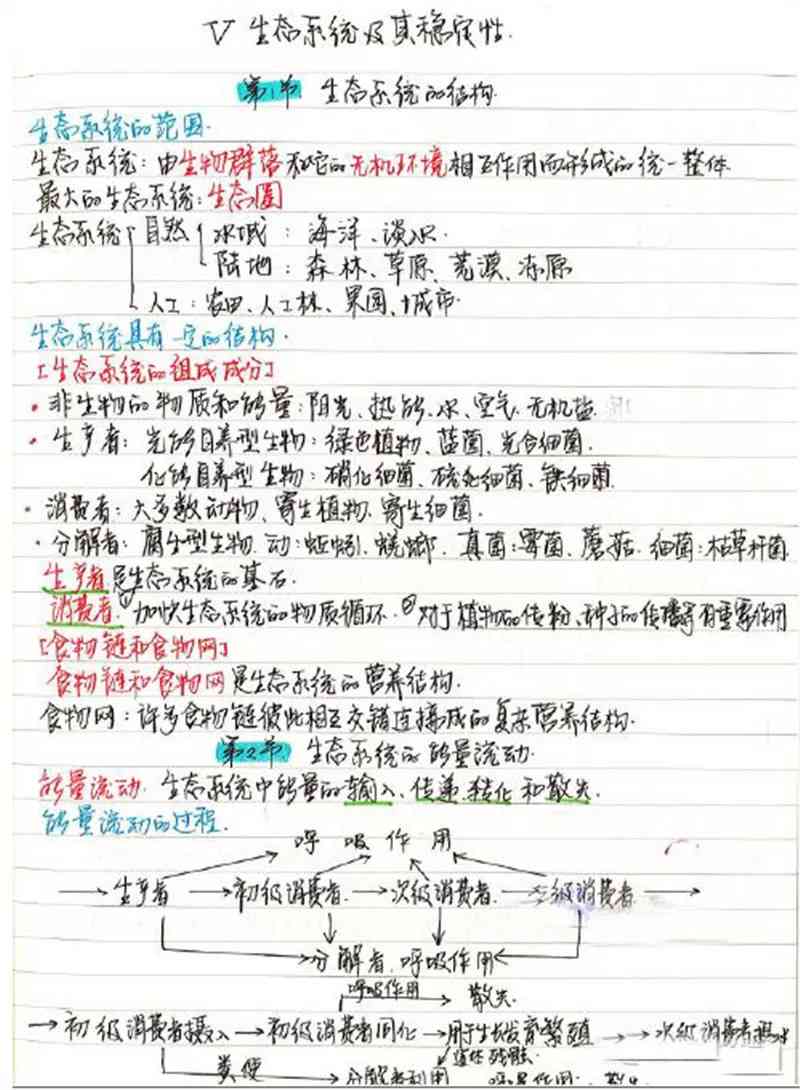 V 生态系统及其稳定性.
第1节 生态系统的结构.
生态系统的范围.
生态系统: 由生物群落和它的无机环境相互作用而形成的统一整体.
最大的生态系统: 生态圈
生态系统 自然 水域 : 海洋、淡水.
陆地 : 森林、草原、荒漠、冻原
人工 : 农田、人工林、果园、城市.
生态系统具有一定的结构.
[生态系统的组成成分]
· 非生物的物质和能量: 阳光、热能、水、空气、无机盐.
· 生产者: 光能自养型生物: 绿色植物、蓝菌、光合细菌.
化能自养型生物: 硝化细菌、硫化细菌、铁细菌.
· 消费者: 大多数动物、寄生植物、寄生细菌.
· 分解者: 腐生型生物. 动: 蚯蚓、蜣螂. 真菌: 霉菌、蘑菇. 细菌: 枯草杆菌
生产者是生态系统的基石.
消费者: ①加快生态系统的物质循环. ②对于植物的传粉、种子的传播等有重要作用
[食物链和食物网]
食物链和食物网是生态系统的营养结构.
食物网: 许多食物链彼此相互交错连接成的复杂营养结构.
第2节 生态系统的能量流动.
能量流动. 生态系统中能量的输入、传递、转化和散失.
能量流动的过程.
呼吸作用
→ 生产者 → 初级消费者 → 次级消费者 → 三级消费者 →
分解者. 呼吸作用
呼吸作用 → 散失.
→ 初级消费者摄入 → 初级消费者同化 → 用于生长发育繁殖 → 次级消费者摄
遗体残骸
粪便 → 分解者利用 呼吸作用